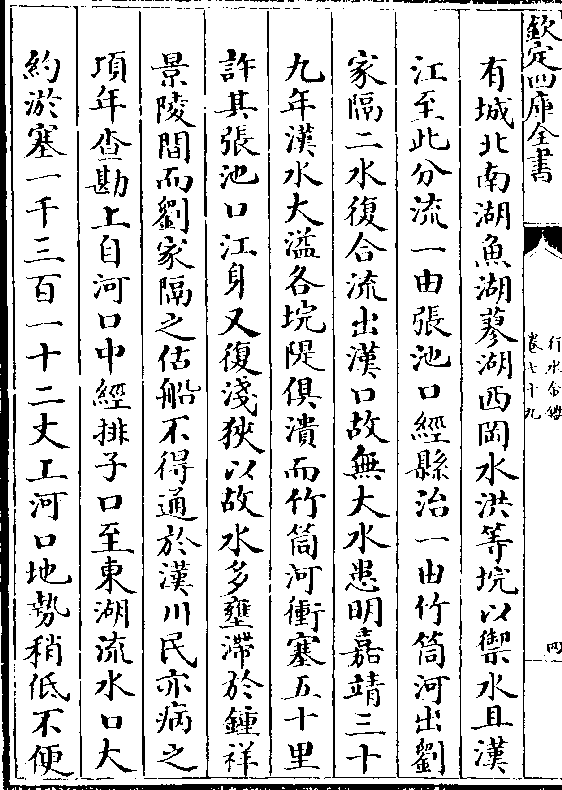 欽定四庫全書
行水金鑑
卷七十九
四
有城北南湖魚湖蓼湖西岡水洪等垸以禦水且漢
江至此分流一由張池口經縣治一由竹筒河出劉
家隔二水復合流出漢口故無大水患明嘉靖三十
九年漢水大溢各垸隄俱潰而竹筒河衝塞五十里
許其張池口江身又復淺狹以故水多壅滯於鍾祥
景陵間而劉家隔之估船不得通於漢川民亦病之
項年查勘上自河口中經排子口至東湖流水口大
約淤塞一千三百一十二丈工河口地勢稍低不便